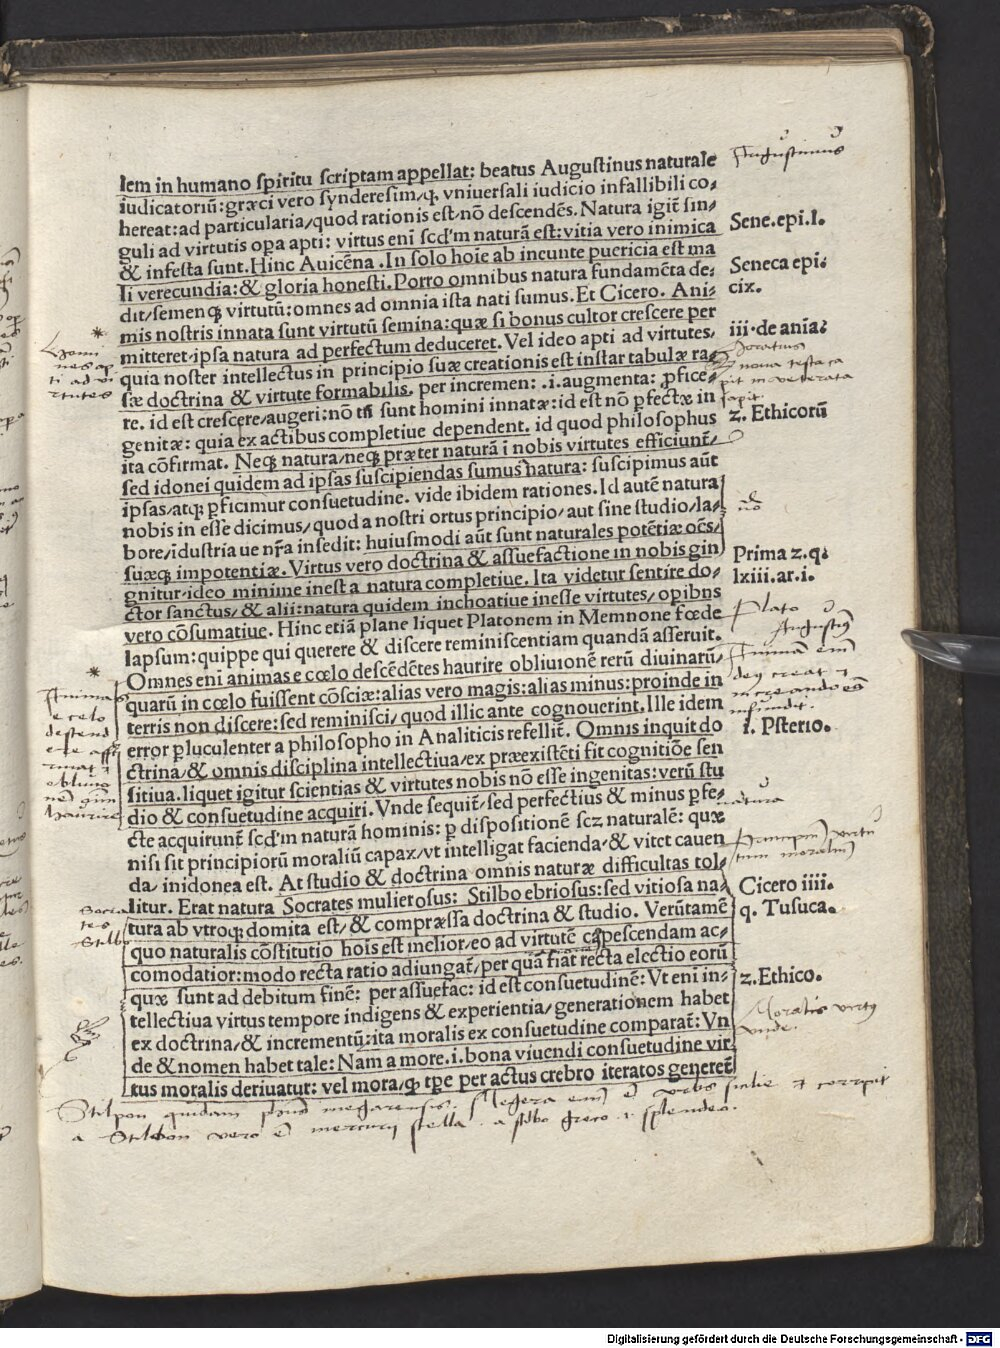 lem in humano spiritu scriptam appellat: beatus Augustinus naturale
iudicatoriū: græci vero synderesim, ꝙ vniuersali iudicio infallibili co⸗
hereat: ad particularia, quod rationis est, nō descendēs. Natura igit̄ sin⸗
guli ad virtutis oꝑa apti: virtus enī scd'm naturā est: vitia vero inimica
& infesta sunt. Hinc Auicēna. In solo hoīe ab ineunte puericia est ma
li verecundia: & gloria honesti. Porro omnibus natura fundamēta de⸗
dit, semenqꝫ virtutū: omnes ad omnia ista nati sumus. Et Cicero. Ani⸗
mis nostris innata sunt virtutū semina: quæ si bonus cultor crescere per
mitteret, ipsa natura ad perfectum deduceret. Vel ideo apti ad virtutes,
quia noster intellectus in principio suæ creationis est instar tabulæ ra⸗
sæ doctrina & virtute formabilis. per incremen: .i. augmenta: ꝓfice⸗
re. id est crescere, augeri: nō tn̄ sunt homini innatæ: id est nō ꝑfectæ in
genitæ: quia ex actibus completiue dependent. id quod philosophus
ita cōfirmat. Neqꝫ natura, neqꝫ præter naturā ī nobis virtutes efficiunt̄,
sed idonei quidem ad ipsas suscipiendas sumus natura: suscipimus aūt
ipsas, atqꝫ ꝑficimur consuetudine. vide ibidem rationes. Id autē natura
nobis in esse dicimus, quod a nostri ortus principio, aut sine studio, la⸗
bore, īdustria ue nr̄a insedit: huiusmodi aūt sunt naturales potētiæ oēs,
suæqꝫ impotentiæ. Virtus vero doctrina & assuefactione in nobis gin
gnitur, ideo minime inest a natura completiue. Ita videtur sentire do⸗
ctor sanctus, & alii: natura quidem inchoatiue inesse virtutes, oꝑibus
vero cōsumatiue. Hinc etiā plane liquet Platonem in Memnone fœde
lapsum: quippe qui querere & discere reminiscentiam quandā asseruit.
Omnes eni animas e cœlo descēdētes haurire obliuionē rerū diuinarū,
quarū in cœlo fuissent cōsciæ: alias vero magis: alias minus: proinde in
terris non discere: sed reminisci, quod illic ante cognouerint. Ille idem
error ꝑluculenter a philosopho in Analiticis refellit̄. Omnis inquit do
ctrina, & omnis disciplina intellectiua, ex præexistēti fit cognitiōe sen
sitiua. liquet igitur scientias & virtutes nobis nō esse ingenitas: verū stu
dio & consuetudine acquiri. Vnde sequit̄, sed perfectius & minus ꝑfe⸗
cte acquirunt̄ scd'm naturā hominis: ꝑ dispositionē scꝫ naturalē: quæ
nisi sit principiorū moraliū capax, vt intelligat facienda, & vitet cauen
da, inidonea est. At studio & doctrina omnis naturæ difficultas tol⸗
litur. Erat natura Socrates mulierosus: Stilbo ebriosus: sed vitiosa na⸗
tura ab vtroqꝫ domita est, & compræssa doctrina & studio. Verūtamē
quo naturalis cōstitutio hoīs est melior, eo ad virtutē capescendam ac⸗
comodatior: modo recta ratio adiungat̄, per quā fiat recta electio eorū
quæ sunt ad debitum finē: per assuefac: id est consuetudinē: Vt enī in⸗
tellectiua virtus tempore indigens & experientia, generationem habet
ex doctrina, & incrementū: ita moralis ex consuetudine comparat̄: Vn
de & nomen habet tale: Nam a more .i. bona viuendi consuetudine vir
tus moralis deriuatur: vel mora, ꝙ tꝑe per actus crebro iteratos generet̄
Augustinus
Sene.epi.l.
Seneca epi:
cix.
iii.de aniā:
z. Ethicorū
Prima z.q:
lxiii.ar.i.
Plato
Augustinus
i. Psterio.
natura
Cicero iiii.
q. Tuscua.
z.Ethico.
Moralis virtus
vnde.
Homi
nes ap
ti ad vir
tutes
Animas
e celo
descend
ere
haurire
Socra
tes
Stilbo